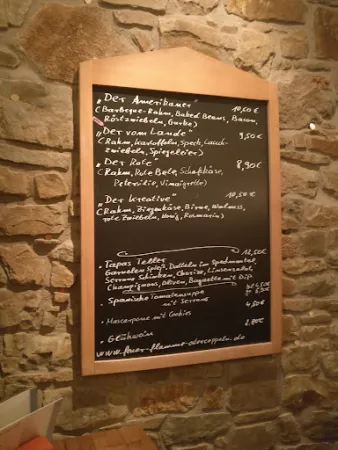 "Der Amerikaner" 10,50 €
(Barbeque-Rahm, Baked Beans, Bacon,
Röstzwiebeln, Gurke)
"Der vom Lande" 9,50 €
(Rahm, Kartoffeln, Speck, Lauch-
zwiebeln, Spiegeleier)
"Der Rote" 8,90 €
(Rahm, Rote Bete, Schafskäse,
Petersilie, Vinaigrette)
"Der Kreative" 10,50 €
(Rahm, Ziegenkäse, Birne, Walnuss,
rote Zwiebeln, Honig, Rosmarin)
• Tapas Teller 12,50 €
Garnelen Spieß, Datteln im Speckmantel,
Serrano Schinken, Chorizo, Linsensalat,
Champignons, Oliven, Baguette mit Dip
• Spanische Tomatensuppe
mit Serrano
• Mascarpone mit Cookies 4,50 €
• Glühwein 2,80 €